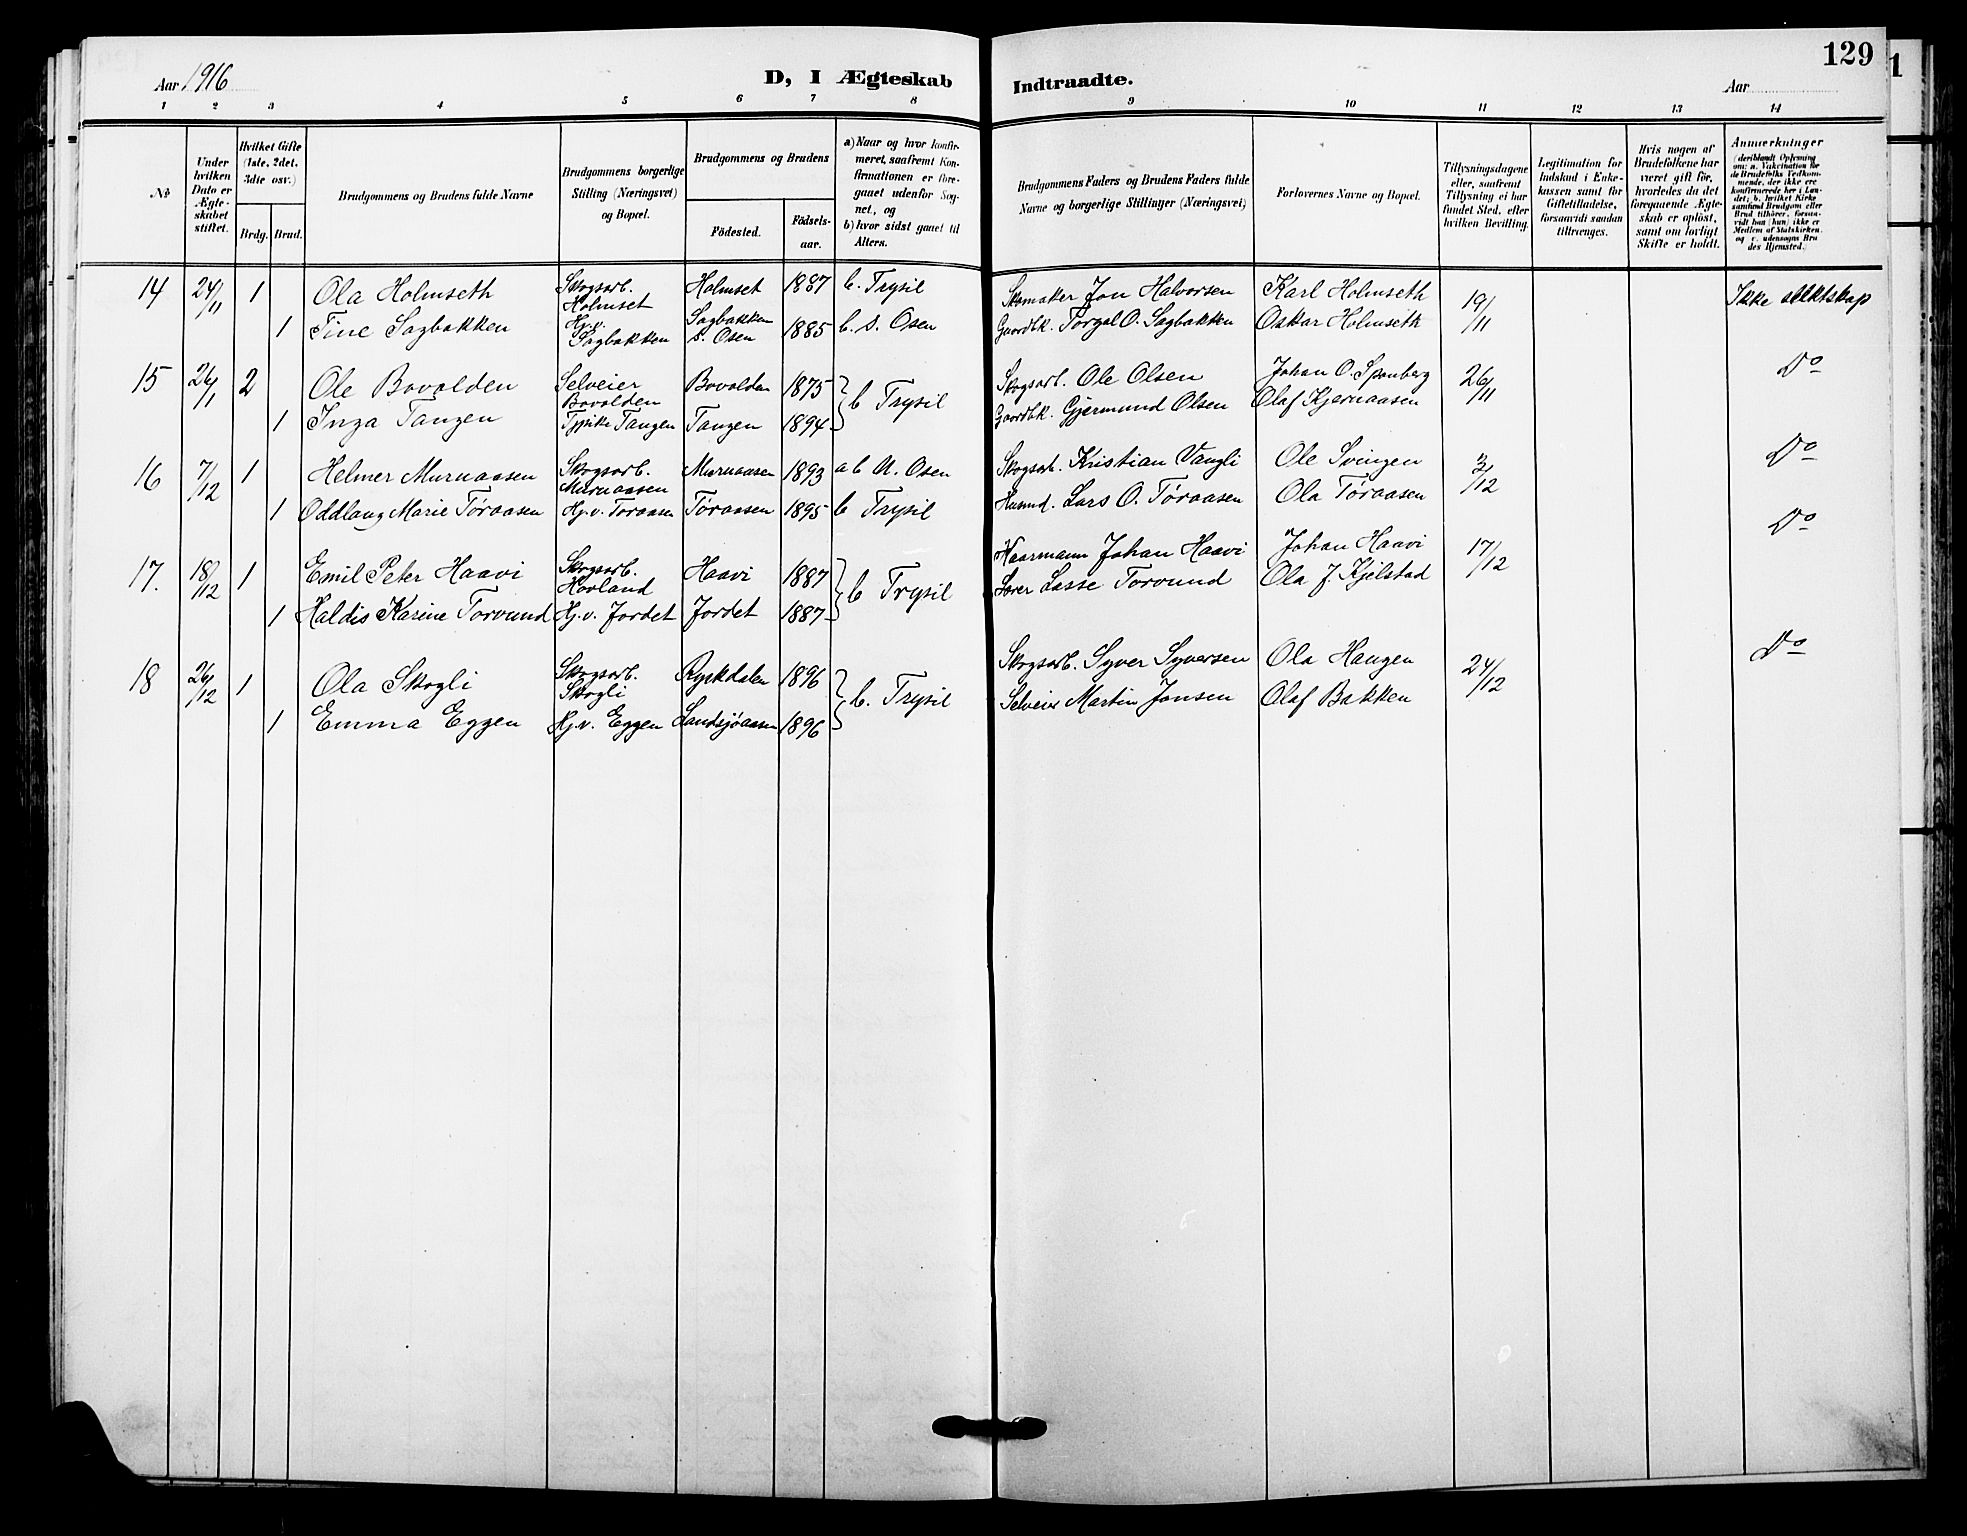 129
Aar 1916
D, I Ægteskab Indtraadte.
Aar
1 2 3 4 5 6 7 8 9 10 11 12 13 14
№
Under hvilken Dato er Ægte-skabet stiftet.
Hvilket Gifte (1ste, 2det, 3die osv.)
Brdg. Brud.
Brudgommens og Brudens fulde Navne
Brudgommens borgerlige Stilling (Næringsvei) og Bopæl.
Brudgommens og Brudens
Födested.
Födsels-aar.
a) Naar og hvor konfir-meret, saafremt Kon-firmationen er fore-gaaet udenfor Sog-net, og
b) hvor sidst gaaet til Alters.
Brudgommens Faders og Brudens Faders fulde Navne og borgerlige Stillinger (Næringsvei)
Forlovernes Navne og Bopæl.
Tillysningsdagene eller, saafremt Tillysning ei har fundet Sted, efter hvilken Bevilling.
Legitimation for Indskud i Enke-kassen samt for Giftetilladelse, forsaavidt saadan tiltrænges.
Hvis nogen af Brudefolkene har været gift för, hvorledes da det foregaaende Ægte-skab er oplöst, samt om lovligt Skifte er holdt.
Anmærkninger
(deriblandt Oplysning om: a. Vakcination for de Brudefolks Vedkom-mende, der ikke ere konfirmerede her i Lan-det; b. hvilket Kirke-samfund Brudgom eller Brud tilhörer, forsaa-vidt han (hun) ikke er Medlem af Statskirken, og c. udensogns Bru-des Hjemsted.
14 24/11 1 Ola Holmseth Skogsarb. Holmset Holmset 1887 b. Trysil Skomaker Jon Halvorsen Karl Holmseth 19/11 Ikke slektskap
1 Tine Sagbakken Hj.v. Sagbakken Sagbakken s. Osen 1885 b. S. Osen Gaardbk. Torgal O. Sagbakken Oskar Holmseth
15 26/1 2 Ole Bovolden Selveier Bovolden Bovolden 1875 b Trysil Skogsarb. Ole Olsen Johan O. Sponberg 26/11 Do
1 Inga Tangen Tjpike Tangen Tangen 1894 Gaardbk. Gjermund Olsen Olaf Kjernaasen
16 7/12 1 Helmer Murnaasen Skogsarb. Murnaasen Murnaasen 1893 a b N. Osen Skogsarb. Kristian Vangli Ole Svingen 3/12 Do
1 Oddlaug Marie Töraasen Hj.v. Toraasen Töraasen 1895 b Trysil Husmd. Lars O. Töraasen Ola Töraasen
17. 18/12 1 Emil Peter Haavi Skogsarb. Horland Haavi 1887 b Trysil Johan Haavi Johan Haavi 17/12 Do
1 Haldis Karine Torvund Hj.v. Jordet Jordet 1887 Lærer Lasse Torvund Ola J. Kjelstad
18 26/12 1 Ola Skogli Skogsarb. Skogli Ryskdalen 1896 b. Trysil Skogsarb. Syver Syversen Ola Haugen 24/12 Do
1 Emma Eggen Hj.v. Eggen Landsjöaasen 1896 Selveier Martin Jonsen Olaf Bakken